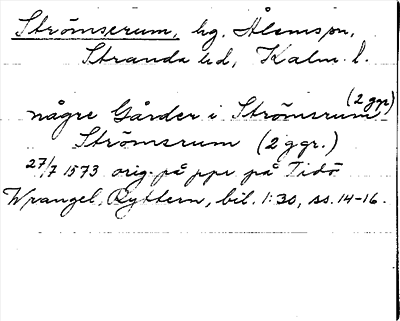 Strömserum, hg. Ålems sn,
Stranda hd, Kalm. l.
någre Gårder i Strömsrum (2 ggr)
Strömsrum (2 ggr.)
27/7 1573 orig. på ppr på Tidö
Wrangel, Ryttern, bil. 1:30, ss. 14-16.